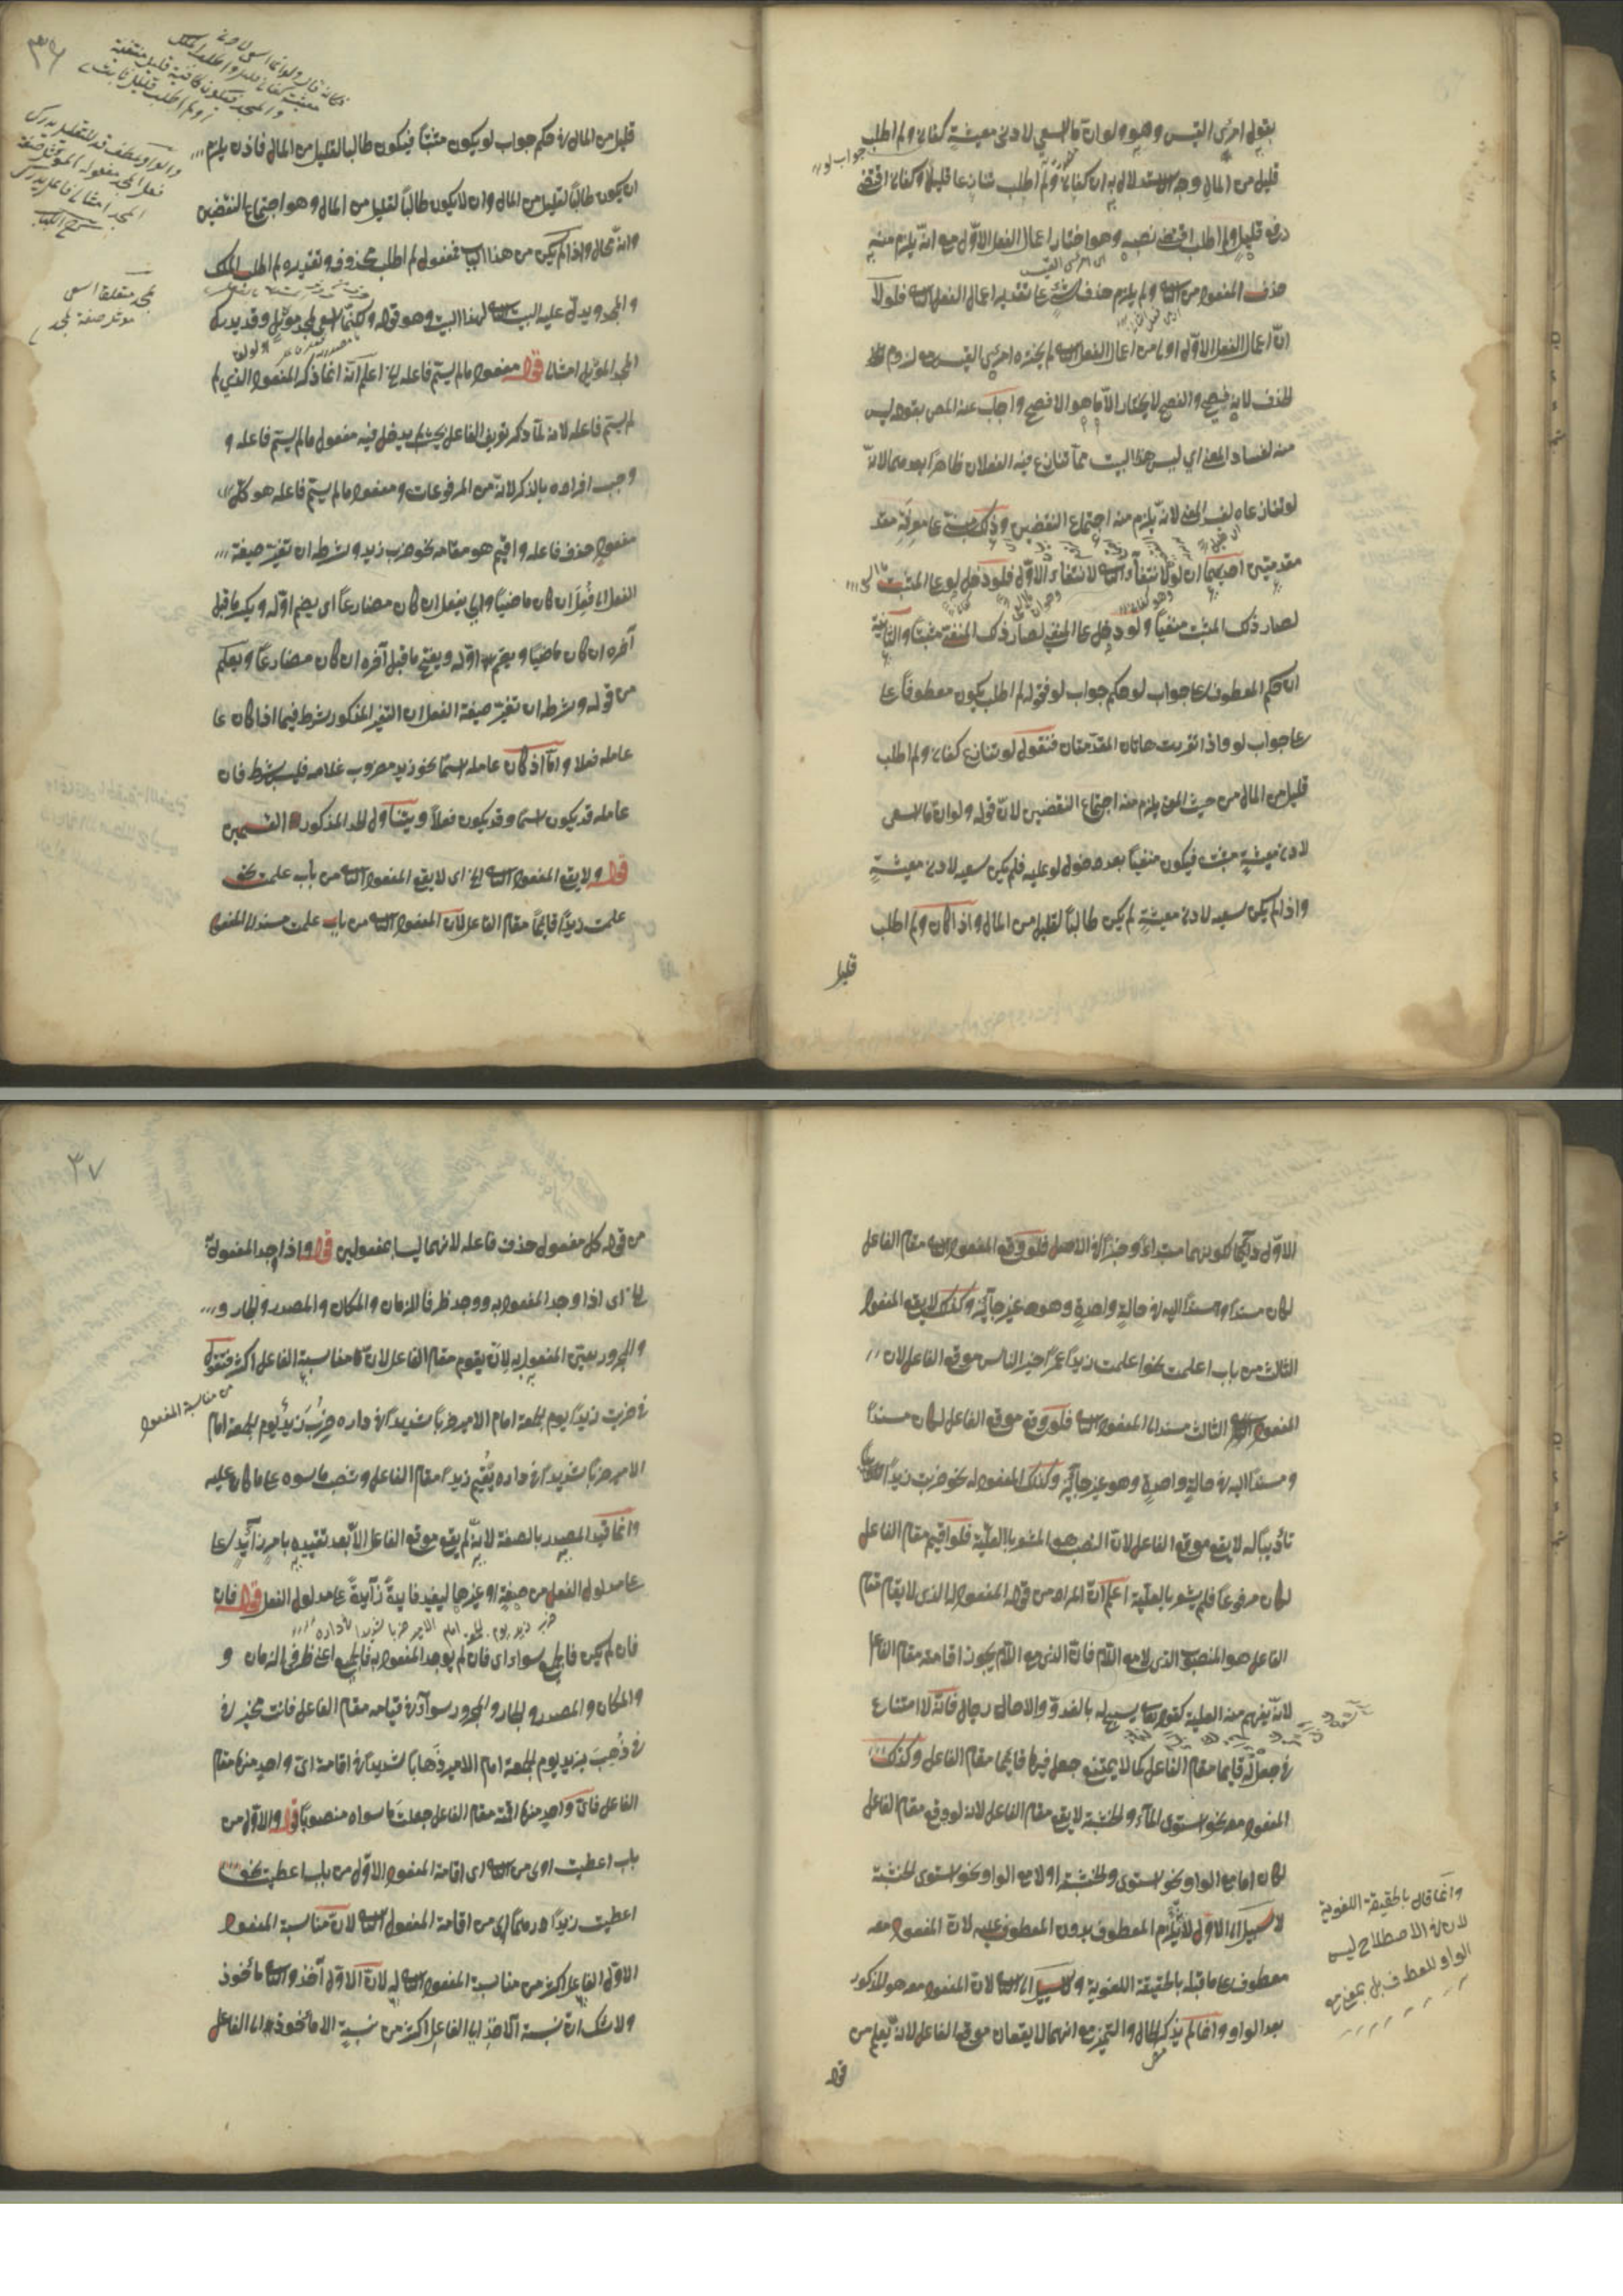 بقول امرئ القيس وهو ولو ان ما اسعى لادنى معيشة كفانى ولم اطلب
قليل من المال وجه الاستدلال به ان كفانى ولم اطلب تنازعا قليلا وكفانى اقتضى
رفع قليل ولم اطلب اقتضى نصبه وهو اختار اعمال الفعل الاول مع انه يلزم منه
حذف المفعول من الثانى ولم يلزم حذف شئ على تقدير اعمال الفعل الثانى فلولا
ان اعمال الفعل الاول اولى من اعمال الفعل الثانى لم يختره امرئ القيس مع لزوم
الحذف لانه فصيح والفصيح لا يختار الا ما هو الافصح واجاب عنه المص بقوله ليس
منه لفساد المعنى اى ليس هذا البيت مما تنازع فيه الفعلان ظاهرا بعدهما لانه
لو تنازعاه لفسد المعنى لانه يلزم منه اجتماع النقيضين وذلك مبنية على معرفة مقد
مقدمتين احديهما ان لو لانتفاء الثانى لانتفاء الاول فلو دخل لو على المثبت
لصار ذلك المثبت منفيا ولو دخل على المنفى لصار ذلك المنفى مثبتا والثانية
ان حكم المعطوف على جواب لو حكم جواب لو فقوله لم اطلب يكون معطوفا على
على جواب لو واذا تقررت هاتان المقدمتان فنقول لو تنازع كفانى ولم اطلب
قليل من المال من حيث المعنى يلزم منه اجتماع النقيضين لان قوله ولو ان ما اسعى
لادنى معيشة مثبت فيكون منفيا بعد دخول لو عليه فلم يكن سعيه لادنى معيشة
واذا لم يكن سعيه لادنى معيشة لم يكن طالبا لقليل من المال واذا كان ولم اطلب
قليل
جواب لو
٣٦
قليل من المال فى حكم جواب لو يكون مثبتا فيكون طالبا لقليل من المال فاذن يلزم
ان يكون طالبا لقليل من المال وان لا يكون طالبا لقليل من المال وهو اجتماع النقيضين
وانه محال واذا لم يكن من هذا الباب فمفعول لم اطلب محذوف وتقديره لم اطلب الملك
والمجد ويدل عليه البيت الثانى لهذا البيت وهو قوله ولكنما اسعى لمجد موثل وقد يدرك
المجد الموثل امثالى قوله مفعول ما لم يسم فاعله الخ اعلم انه انما ذكر المفعول الذى لم
لم يسم فاعله لانه لما ذكر تعريف الفاعل بحيث لم يدخل فيه مفعول ما لم يسم فاعله و
وجب افراده بالذكر لانه من المرفوعات ومفعول ما لم يسم فاعله هو كل
مفعول حذف فاعله واقيم هو مقامه نحو ضرب زيد وشرطه ان تغير صيغة
الفعل الى فعل ان كان ماضيا والى يفعل ان كان مضارعا اى يضم اوله ويكسر ما قبل
آخره ان كان ماضيا ويضم اوله ويفتح ما قبل آخره ان كان مضارعا ويعلم
من قوله وشرطه ان تغير صيغة الفعل ان التغير المذكور شرط فيما اذا كان عا
عامله فعلا واما اذا كان عامله اسما نحو زيد مضروب غلامه فليس بشرط فان
عامله قد يكون اسما وقد يكون فعلا ويتناول الحد المذكور القسمين
قوله ولا يقع المفعول الثانى الخ اى لا يقع المفعول الثانى من باب علمت نحو
علمت زيدا قائما مقام الفاعل لان المفعول الثانى من باب علمت مسند الى المفعول
لمجد متعلق اسعى
موثل صفة لمجد
الاول دائما لكونهما مبتداء وخبرا فى الاصل فلو وقع المفعول الثانى مقام الفاعل
لكان مسندا ومسندا اليه فى حالة واحدة وهو غير جائز وكذلك لا يقع المفعول
الثالث من باب اعلمت نحو اعلمت زيدا عمرا خير الناس موقع الفاعل لان
المفعول الثالث مسند الى المفعول الثانى فلو وقع موقع الفاعل لكان مسندا
ومسندا اليه فى حالة واحدة وهو غير جائز وكذلك المفعول له نحو ضربت زيدا
تأديبا له لا يقع موقع الفاعل لان النصب هو المشعر بالعلية فلو اقيم مقام الفاعل
لكان مرفوعا فلم يشعر بالعلية اعلم ان المراد من قوله المفعول له الذى لا يقام مقام
الفاعل هو المنصوب الذى لا مع اللام فان الذى مع اللام يجوز اقامته مقام الفاعل
لانه يفهم منه العلية كقوله تعالى يسبح له بالغدو والاصال رجال فانه لا امتناع
فى جعل له قائما مقام الفاعل كما لا يمتنع جعل فيها قائما مقام الفاعل وكذلك
المفعول معه نحو استوى الماء والخشبة لا يقع مقام الفاعل لانه لو وقع مقام الفاعل
لكان اما مع الواو نحو استوى والخشبة اولا مع الواو نحو استوى الخشبة
لا سبيل الى الاول لئلا يلزم المعطوف بدون المعطوف عليه لان المفعول معه
معطوف على ما قبله بالحقيقة اللغوية ولا سبيل الى الثانى لان المفعول معه هو المذكور
بعد الواو وانما لم يذكر الحال والتميز مع انهما لا يقعان موقع الفاعل لانه يعلم من
قوله
وانما قال بالحقيقة اللغوية
لان فى الاصطلاح ليس
الواو للعطف بل بمعنى مع
٣٧
من قوله كل مفعول حذف فاعله لانهما ليسا بمفعولين قوله واذا وجد المفعول به
الخ اى اذا وجد المفعول به ووجد ظرفا الزمان والمكان والمصدر والجار و
والمجرور يعين المفعول به لان يقوم مقام الفاعل لان مناسبة الفاعل اكثر فتقول
من مناسبة المفعول
فى ضربت زيدا يوم الجمعة امام الامير ضربا شديدا فى داره ضرب زيد يوم الجمعة امام
الامير ضربا شديدا فى داره يقيم زيدا مقام الفاعل وتنصب ما سواه على ما كان عليه
وانما قيد المصدر بالصفة لانه لم يقع موقع الفاعل الا بعد تقييده بامر زائد عا
على مدلول الفعل من صفة او غيرها ليفيد فايدة زائدة على مدلول الفعل قوله فان
ضرب زيد يوم الجمعة امام الامير ضربا شديدا فى داره
فان لم يكن فالجميع سواء اى فان لم يوجد المفعول به فالجميع اعنى ظرفى الزمان و
والمكان والمصدر والجار والمجرور سواء فى قيامه مقام الفاعل فانت مخير فى
فى ذهب بزيد يوم الجمعة امام الامير ذهابا شديدا فى اقامة اى واحد منها مقام
الفاعل فاى واحد منها اقمته مقام الفاعل جعلت ما سواه منصوبا قوله والاول من
باب اعطيت اولى من الثانى اى اقامة المفعول الاول من باب اعطيت نحو
اعطيت زيدا درهما اولى من اقامة المفعول الثانى لان مناسبة المفعول
الاول الفاعل اكثر من مناسبة المفعول الثانى له لان الاول آخذ والثانى مأخوذ
ولا شك ان نسبة الآخذ الى الفاعل اكثر من نسبة المأخوذ الى الفاعل